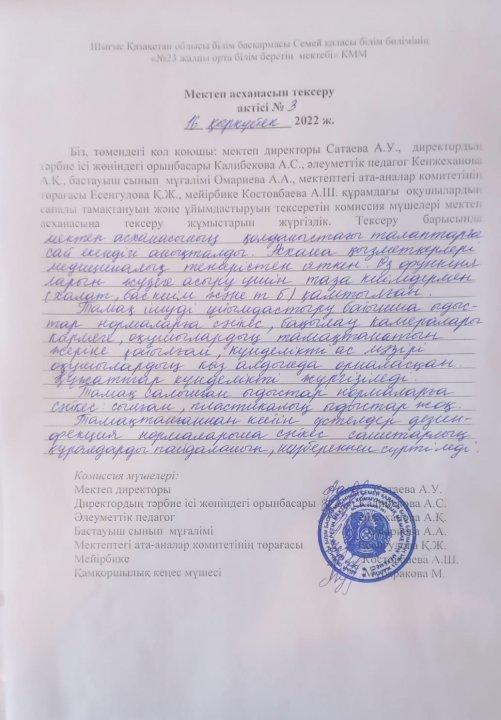 Шығыс Қазақстан облысы білім басқармасы Семей қаласы білім бөлімінің
«№23 жалпы орта білім беретін мектебі» КММ
Мектеп асханасын тексеру
актісі № 3
16 қыркүйек 2022 ж.
Біз, төмендегі қол қоюшы: мектеп директоры Сатаева А.У., директордың
тәрбие ісі жөніндегі орынбасары Калибекова А.С., әлеуметтік педагог Кенжеханова
А.Қ., бастауыш сынып мұғалімі Омариева А.А., мектептегі ата-аналар комитетінің
төрағасы Есенгулова Қ.Ж., мейірбике Костовбаева А.Ш. құрамдағы оқушылардың
сапалы тамақтануын және ұйымдастыруын тексеретін комиссия мүшелері мектеп
асханасына тексеру жұмыстарын жүргіздік. Тексеру барысында
мектеп асханасының қолданыстағы талаптарға
сай екендігі анықталды. Асхана қызметкерлері
медициналық тексерістен өткен. Өз функция
ларын жүзеге асыру үшін таза киімдермен
(халат, бас киім және т б) қамтылған.
Тамақ ішуді ұйымдастыру бойынша ыдыс-
тар нормаларға сәйкес, бақылау камералары
көрнекі, оқушылардың тамақтанатын
жеріне қойылған, күнделікті ас мәзірі
оқушылардың көз алдында орналасқан.
Құжаттар күнделікті жүргізіледі.
Тамақ салынған ыдыстар нормаларға
сәйкес: сынған, пластикалық ыдыстар жоқ.
Тамақтанғаннан кейін үстелдер дезин-
фекция нормаларына сәйкес санитарлық
құралдарды пайдаланып, шүберекпен сүртіледі.
Комиссия мүшелері:
Мектеп директоры Сатаева А.У.
Директордың тәрбие ісі жөніндегі орынбасары Калибекова А.С.
Әлеуметтік педагог А.Қ.
Бастауыш сынып мұғалімі А.А.
Мектептегі ата-аналар комитетінің төрағасы Қ.Ж.
Мейірбике А.Ш.
Қамқоршылық кеңес мүшесі М.